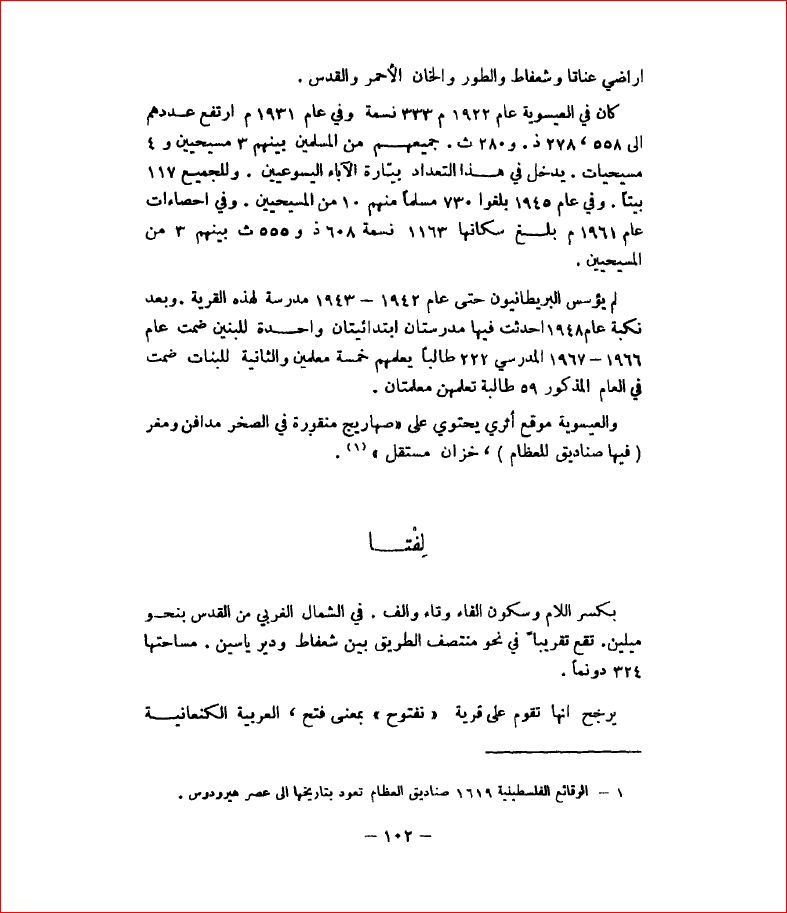 اراضي عناتا وشعفاط والطور والخان الأحمر والقدس .
كان في العيسوية عام ١٩٢٢ م ٣٣٣ نسمة وفي عام ١٩٣١ م ارتفع عددهم
الى ٥٥٨ ، ٢٧٨ ذ . و ٢٨٠ ث . جميعهم من المسلمين بينهم ٣ مسيحيين و ٤
مسيحيات . يدخل في هذا التعداد بيّارة الآباء اليسوعيين . وللجميع ١١٧
بيتاً . وفي عام ١٩٤٥ بلغوا ٧٣٠ مسلماً منهم ١٠ من المسيحيين . وفي احصاءات
عام ١٩٦١ م بلغ سكانها ١١٦٣ نسمة ٦٠٨ ذ و ٥٥٥ ث بينهم ٣ من
المسيحيين .
لم يؤسس البريطانيون حتى عام ١٩٤٢ – ١٩٤٣ مدرسة لهذه القرية . وبعد
نكبة عام ١٩٤٨ احدثت فيها مدرستان ابتدائيتان واحدة للبنين ضمت عام
١٩٦٦ – ١٩٦٧ المدرسي ٢٢٢ طالباً يعلمهم خمسة معلمين والثانية للبنات ضمت
في العام المذكور ٥٩ طالبة تعلمهن معلمتان .
والعيسوية موقع أثري يحتوي على «صهاريج منقورة في الصخر مدافن ومغر
( فيها صناديق للعظام ) ، خزان مستقل » (١) .
لِفْتــا
بكسر اللام وسكون الفاء وتاء والف . في الشمال الغربي من القدس بنحو
ميلين. تقع تقريباً في نحو منتصف الطريق بين شعفاط ودير ياسين . مساحتها
٣٢٤ دونماً .
يرجح انها تقوم على قرية « نفتوح » بمعنى فتح ، العربية الكنعانية
١ – الوقائع الفلسطينية ١٦١٩ صناديق العظام تعود بتاريخها الى عصر هيرودوس .
– ١٠٢ –